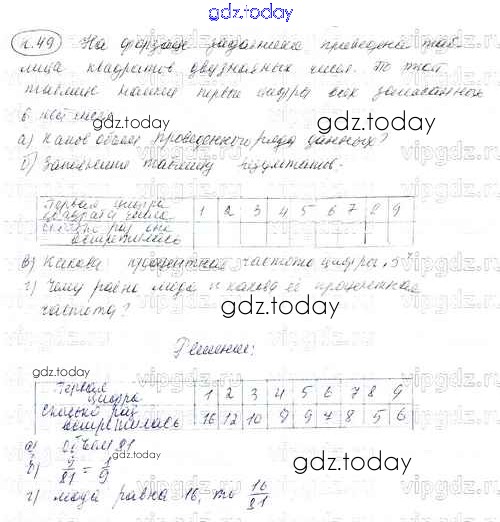 gdz.today
л.49 На форзаце задачника приведена таб-
лица квадратов двузначных чисел. По этой
таблице нашли первые цифры всех записанных
в ней чисел
gdz.today
а) Каков объем приведенного ряда данных?
б) Заполните таблицу результатов.
gdz.today
Первая цифра квадрата числа 1 2 3 4 5 6 7 8 9
сколько раз она встретилась
в) Какова процентная частота цифры "5"
г) Чему равна мода и какова её процентная
частота?
gdz.today
gdz.today
Решение:
Первая цифра 1 2 3 4 5 6 7 8 9
Сколько раз встретилась 16 12 10 9 9 7 8 5 6
а) Объем 81
gdz.today
в) 9/81 = 1/9
г) мода равна 16, то 16/81
gdz.today
gdz.today